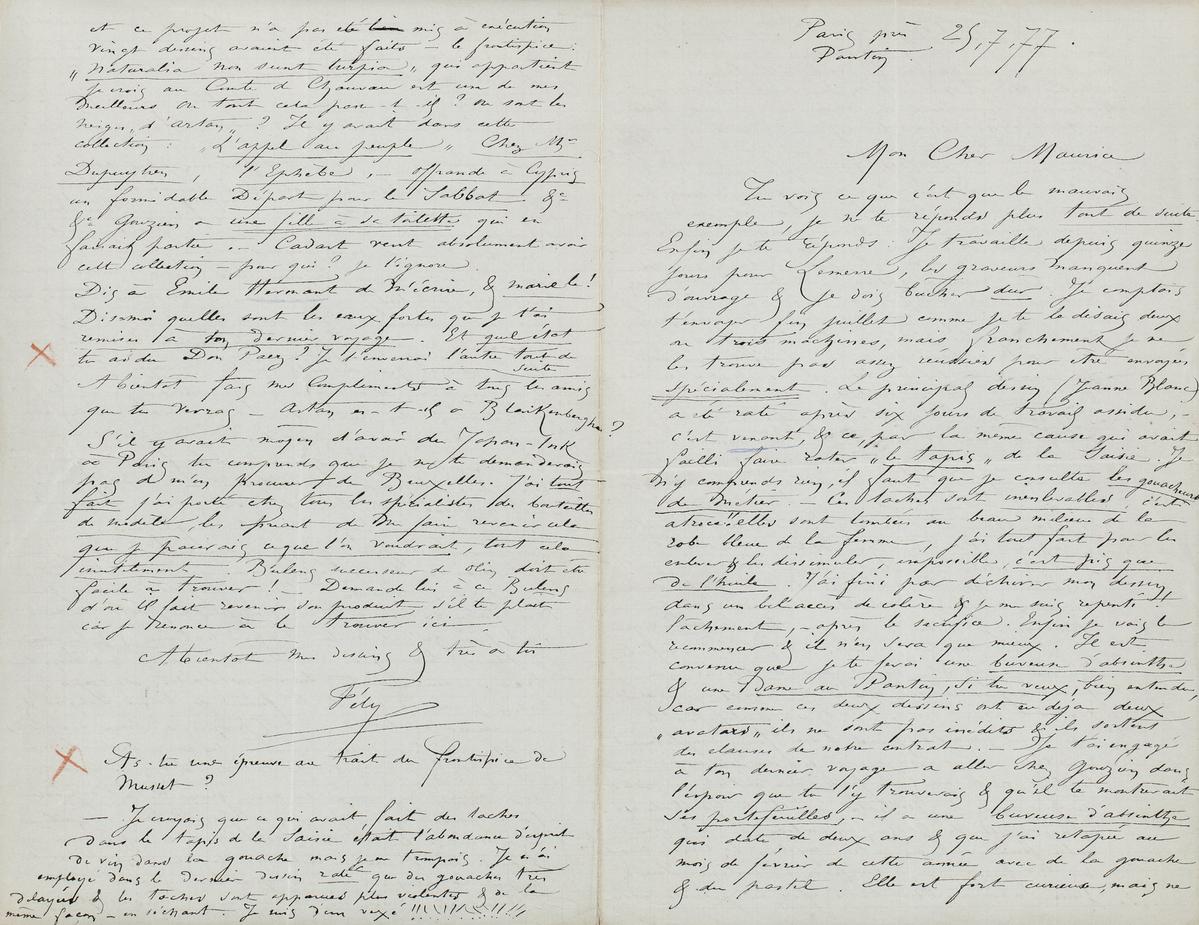 Paris près 25,7,77.
Pantin
Mon Cher Maurice
Tu vois ce que c'est que le mauvais
exemple, je ne te réponds plus tout de suite
Enfin je te réponds. Je travaille depuis quinze
jours pour Lemerre, les graveurs manquent
d'ouvrage & je dois bucher dur. Je comptais
t'envoyer fin juillet comme je te le disais deux
ou trois machines, mais franchement je ne
les trouve pas assez réussies pour être envoyées
spécialement. Le principal dessin (Jeanne Blanc)
a été raté après six jours de travail assidu, –
c'est venant, & ce, par la même cause qui avait
failli faire rater „le tapis„ de la Saisie. Je
n'y comprends rien, il faut que je consulte les gouacheurs
de métier. Ces taches sont inenlevables, c'est
atroce! elles sont tombées au beau milieu de la
robe bleue de la femme, j'ai tout fait pour les
enlever & les dissimuler, impossible, c'est pis que
de l'huile. J'ai fini par déchirer mon dessin
dans un bel accès de colère & je me suis repenti!
lâchement, – après le sacrifice. Enfin je vais le
recommencer & il n'en sera que mieux. Il est
convenu que je te ferai une buveuse d'absinthe
& une Dame au Pantin, si tu veux, bien entendu,
car comme ces deux dessins ont eu déjà deux
„avatars„ ils ne sont pas inédits & ils sortent
des clauses de notre contrat. – Je t'ai engagé
à ton dernier voyage a aller chez Gouzien dans
l'espoir que tu l'y trouverais & qu'il te montrerait
ses portefeuilles, – il a une buveuse d'absinthe
qui date de deux ans & que j'ai retapée au
mois de février de cette année avec de la gouache
& du pastel. Elle est fort curieuse, mais ne
et ce projet n'a pas été mis à exécution
vingt dessins avaient été faits – le frontispice:
„Naturalia non sunt turpia„ qui appartient
je crois au Comte d
meilleurs Où tout cela passe-t-il? où sont les
neiges „d'antan„? Il y avait dans cette
collection: „L'appel au peuple„ Chez Mr
Dupuytren, l'Ephèbe, – offrande à Cypris
un formidable Départ pour le Sabbat &a
&a Gouzien a une fille à sa toilette qui en
faisait partie. – Cadart veut absolument avoir
cette collection – pour qui? je l'ignore.
Dis à Emile Hermant de m'écrire, & marie-le!
Dis-moi quelles sont les eaux fortes que je t'ai
remises à ton dernier voyage. Et quel état
tu as du Don Paez? Je t'enverrai l'autre tout de
suite
A bientôt fais mes compliments à tous les amis
que tu verras – Artan es-t-il à Blankenberghe?
S'il y avait moyen d'avoir du Japan-Ink
à Paris tu comprends que je ne te demanderais
pas de m'en procurer de Bruxelles. J'ai tout
fait j'ai porté chez tous les spécialistes des bouteilles
de modèle, les priant de m'en faire revenir
que je paierais ce que l'on voudrait, tout cela
inutilement. Bulens successeur de doit être
facile à trouver! – Demande lui à ce Bulens
d'où il fait revenir son produit, s'il te plait
car je renonce à le trouver ici
A bientôt mes dessins & très à toi
Fély
As-tu une épreuve au trait du frontispice de
Musset?
– Je croyais que ce qui avait fait des taches
dans le tapis de la Saisie était l'abondance d'esprit
de vin dans la gouache mais je me trompais. Je n'ai
employé dans le dernier dessin raté que des gouaches très
délayées & les taches sont apparues plus violentes & de la
même façon – en séchant. Je suis d'un vexé!!!!!!!!!!!!